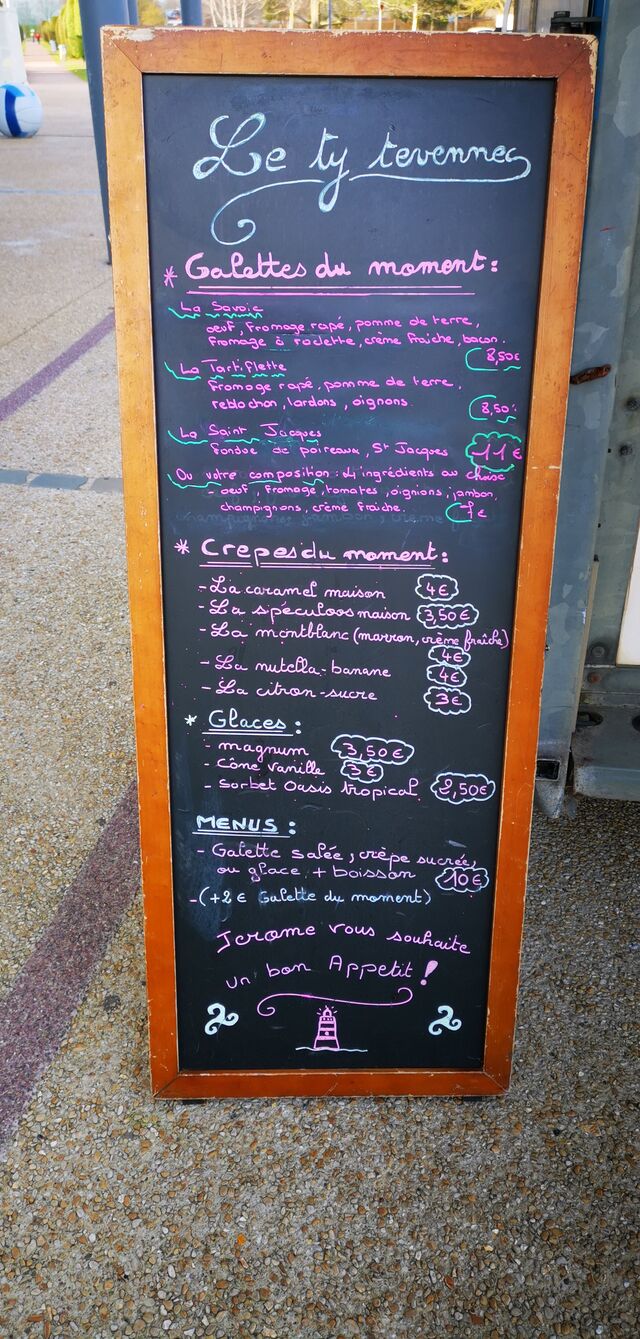 Le ty tevennec
* Galettes du moment :
La Savoie
oeuf, Fromage rapé, pomme de terre,
Fromage à raclette, crème fraiche, bacon.
8,50€
La Tartiflette
Fromage rapé, pomme de terre,
reblochon, lardons, oignons
8,50
La Saint Jacques
Fondue de poireaux, St Jacques 11€
Ou votre composition : 4 ingrédients au choix
- oeuf, Fromage, tomates, oignions, jambon,
champignons, crème fraîche. 7€
* Crepes du moment :
- La caramel maison 4€
- La spéculoos maison 3,50€
- La montblanc (marron, crème fraîche)
4€
- La nutella-banane 4€
- La citron-sucre 3€
* Glaces :
- magnum 3,50€
- Cône vanille 3€
- Sorbet Oasis tropical 2,50€
MENUS :
- Galette salée, crèpe sucrée,
ou glace + boisson 10€
- (+2€ Galette du moment)
Jerome vous souhaite
un bon Appetit !